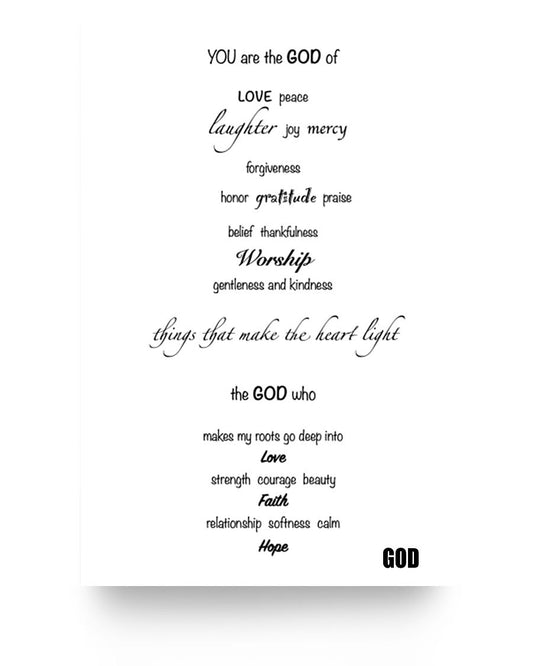 YOU are the GOD of
LOVE peace
laughter joy mercy
forgiveness
honor gratitude praise
belief thankfulness
Worship
gentleness and kindness
things that make the heart light
the GOD who
makes my roots go deep into
Love
strength courage beauty
Faith
relationship softness calm
Hope
GOD